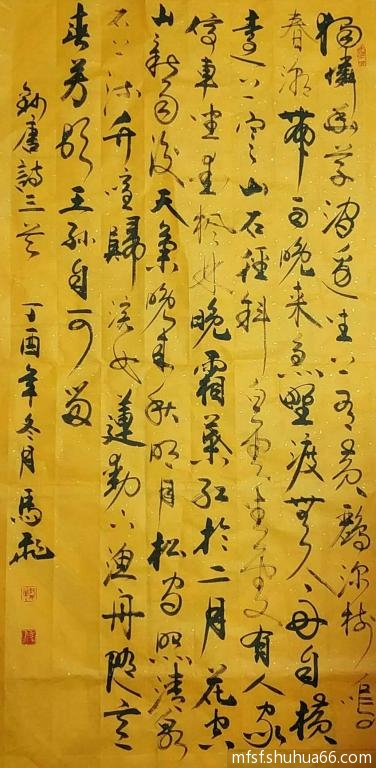 獨憐幽草澗邊生上有黄鸝深樹鳴
春潮帶雨晚来急野渡無人舟自横
遠上寒山石徑斜白雲生處有人家
停車坐愛楓林晚霜葉红於二月花空
山新雨後天氣晚来秋明月松间照清泉
石上流竹喧歸浣女蓮動下漁舟随意
春芳歇王孫自可留
録唐詩三首 丁酉年冬月馬
mfsfshuhua66.com